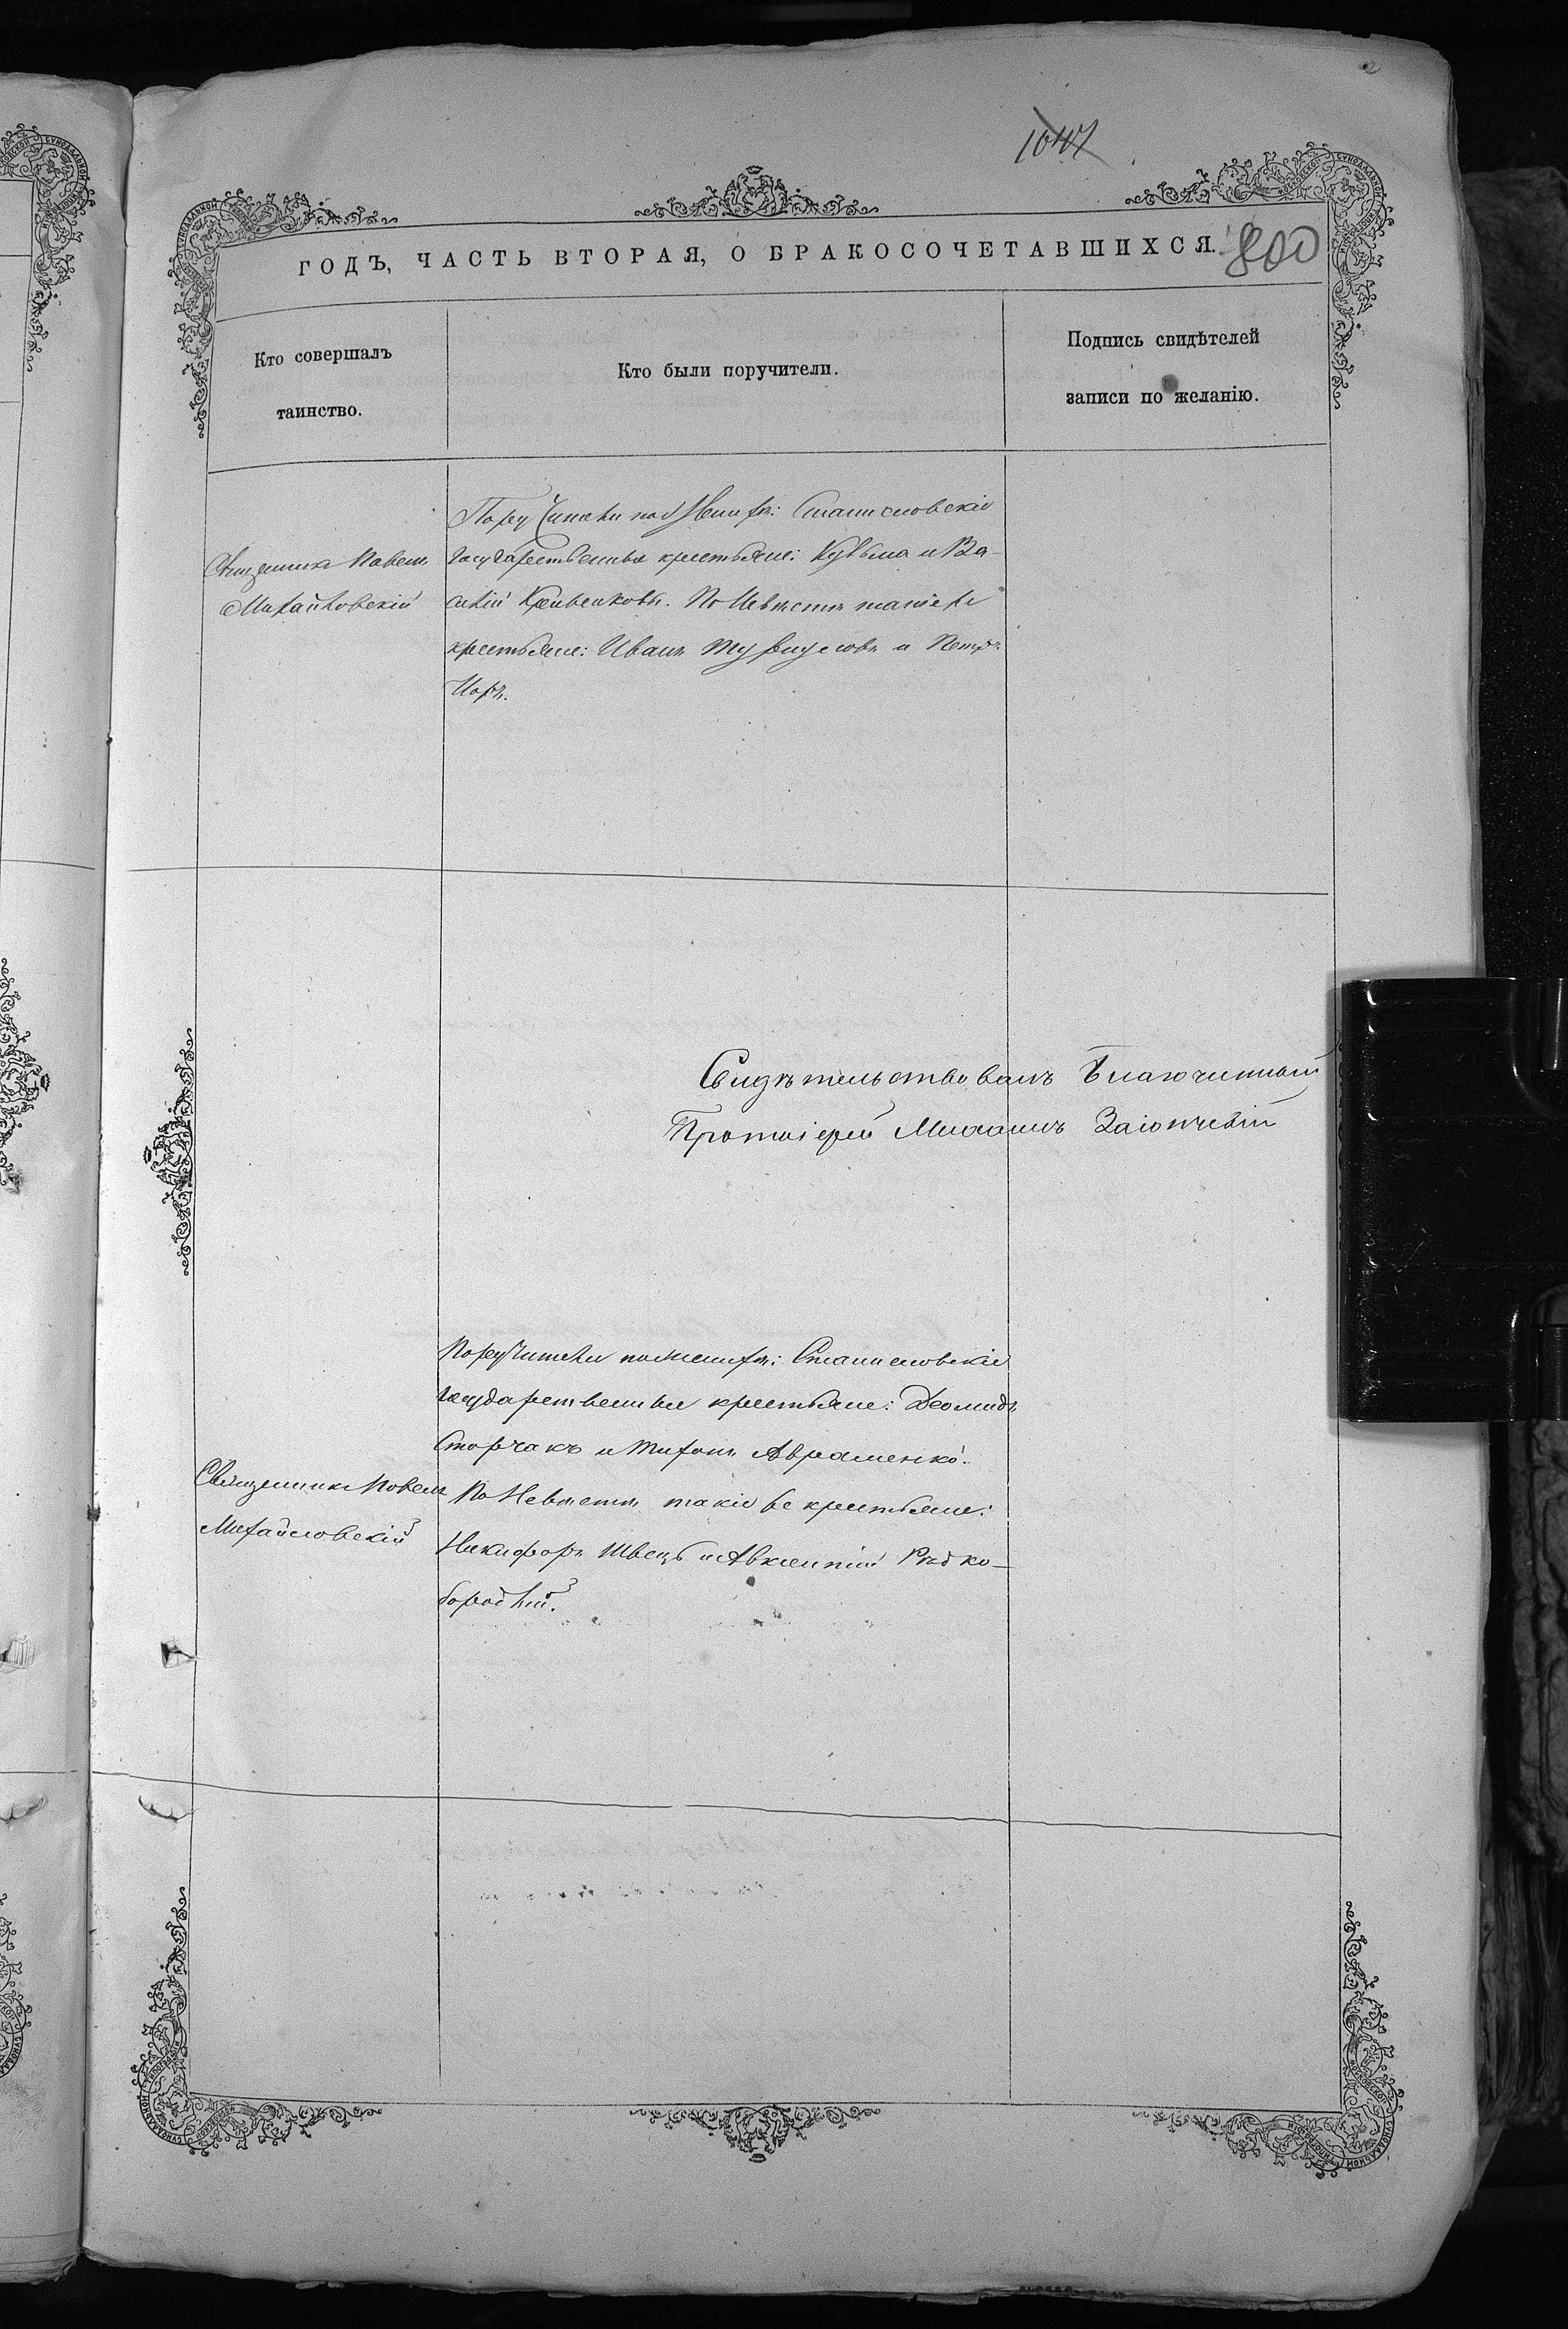 800
ГОДЪ, ЧАСТЬ ВТОРАЯ, О БРАКОСОЧЕТАВШИХСЯ.
Кто совершалъ
таинство.
Кто были поручители.
Подпись свидѣтелей
записи по желанію.
Священникъ Павелъ
Михайловскій
Поручители по Женихѣ: Станиславскіе
государственные крестьяне: Кузьма и Ва-
силій Кривенковы. По Невѣстѣ такіе же
крестьяне: Иванъ и Петръ
Свидѣтельствовалъ Благочинный
Протоіерей Михаилъ Заіончевскій
Поручители по женихѣ: Станиславскіе
государственные крестьяне: Деомидъ
Сторчакъ и Тихонъ Авраменко.
По Невѣстѣ такіе же крестьяне:
Никифоръ Швецъ и Авксентій Рѣдко-
бородый.
Священникъ Павелъ
Михайловскій